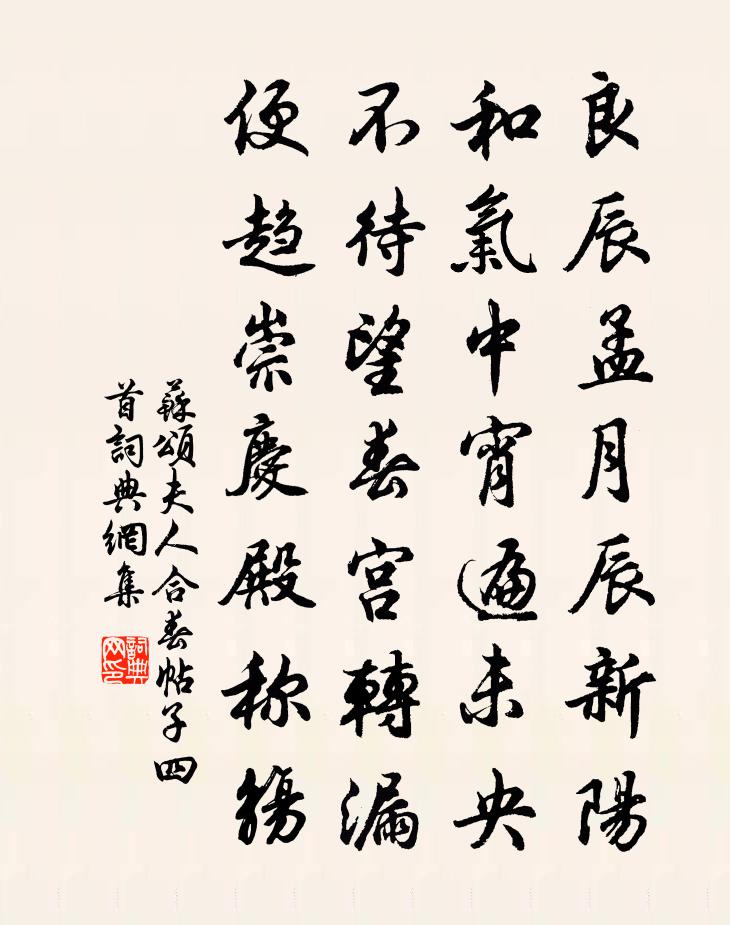 良辰孟月辰新陽
和氣中宵遍未央
不待望春宮轉漏
便趨崇慶殿称觴
蘇頌夫人合春帖子四
首詞典網集
詞典
网印